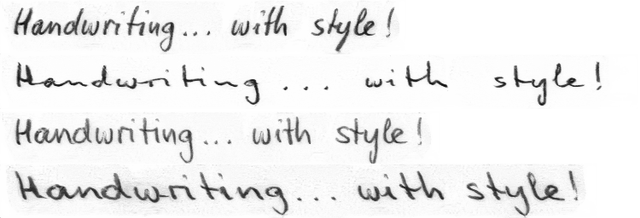 Handwriting... with style!
Handwriting ... with style!
Handwriting... with style!
Handwriting... with style!